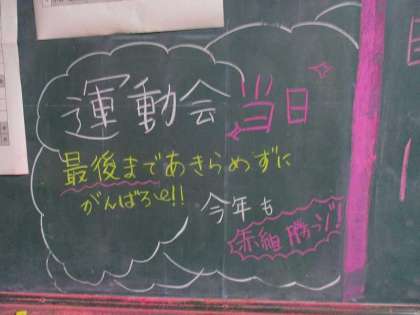 運動会当日
最後まであきらめずに
がんばろぜ!!
今年も
赤組勝つゾ!